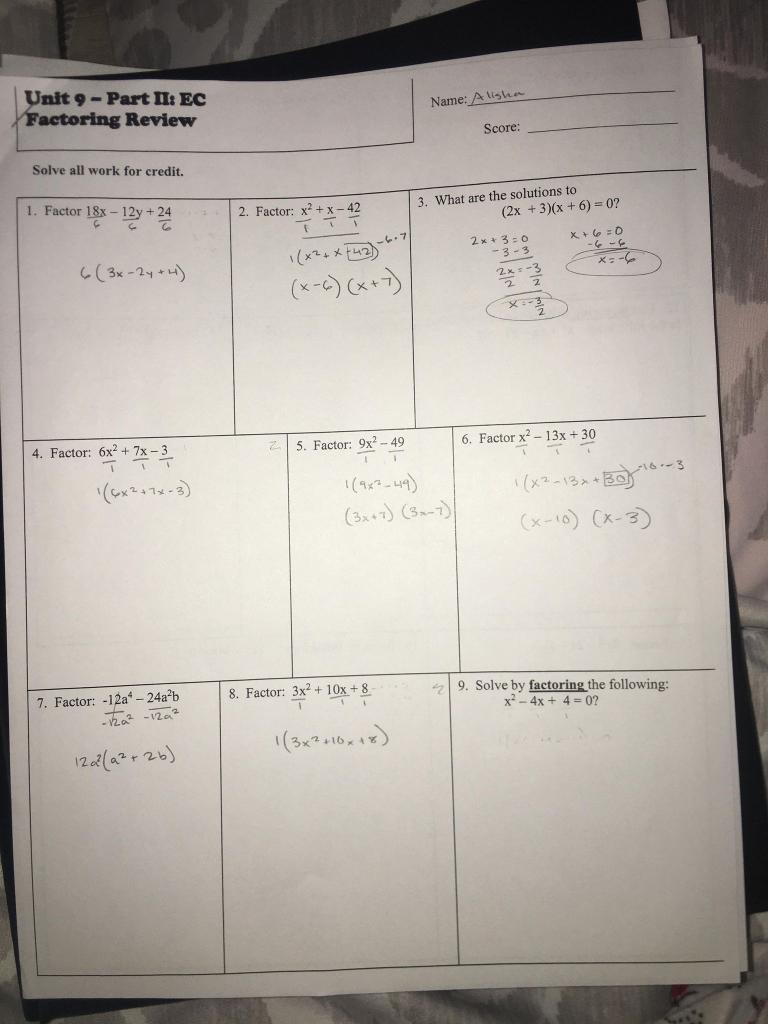 Unit 9 – Part II: EC
Factoring Review
Name: Alisha
Score:
Solve all work for credit.
1. Factor 18x – 12y + 24
6 6 6
6(3x-2y+4)
2. Factor: x² + x – 42
1 1 1
1(x²+x-42) -6·7
(x-6)(x+7)
3. What are the solutions to
(2x + 3)(x + 6) = 0?
2x+3=0
-3-3
2x=-3
2 2
x=-3
2
x+6=0
-6-6
x=-6
4. Factor: 6x² + 7x – 3
1 1 1
1(6x²+7x-3)
5. Factor: 9x² – 49
1 1
1(9x²-49)
(3x+7)(3x-7)
6. Factor x² – 13x + 30
1 1 1
1(x²-13x+30) -10·-3
(x-10) (x-3)
7. Factor: -12a⁴ – 24a²b
-12a² -12a²
12a²(a²+2b)
8. Factor: 3x² + 10x + 8
1 1 1
1(3x²+10x+8)
9. Solve by factoring the following:
x² – 4x + 4 = 0?